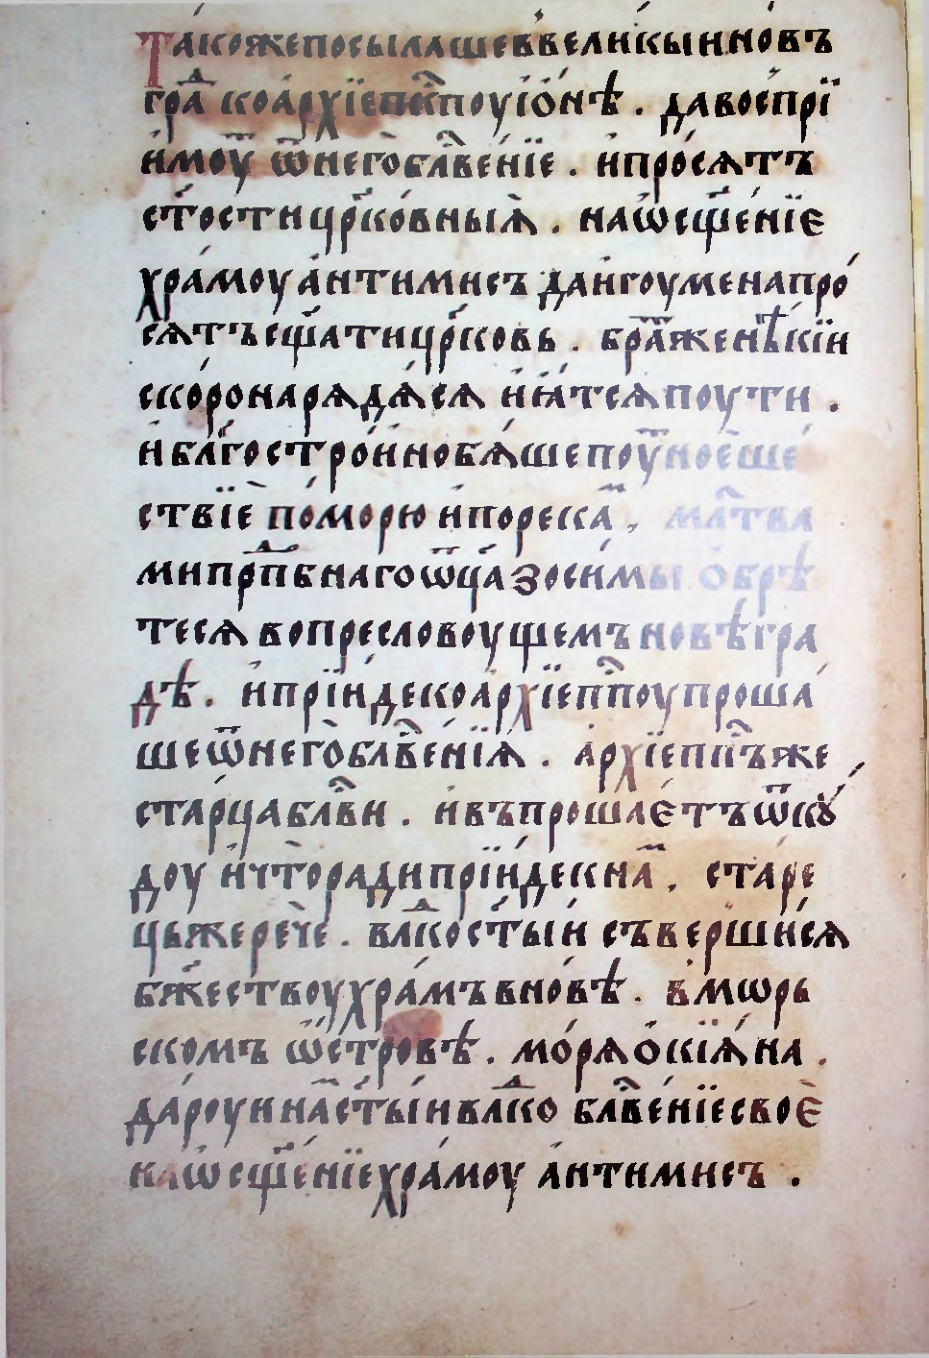 Такоже посылаше в великыи новъ
гра́д к оархїепкⷭ҇поу їо́нѣ . да воспрї
и́моу ѿ него̀ блⷭ҇ве́нїе . и҆ про́сѧтъ
ст҃ости цр҃ко́вныѧ̀ . на ѡ҆сщ҃е́нїе
хра́моу а҆нтимисъ да и҆гоумена про́
сѧтъ сщ҃ати цр҃ковь . бра́таже нѣ́кїи
ско́ро нарѧдѧ́сѧ и҆ ꙗ҆тсѧ поути .
и҆ блг҃острои́но бѧ́ше поу́тноѐ ше́
ствїѐ по́ морю и҆ по рекам . мл҃тва
ми прп҃бнаго ѿц҃а зоси́мы ѻ҆брѣ́
тесѧ во пресловоущемъ новѣ́гра
дѣ . и҆ прїи́де ко архїепⷭ҇поу проша́
ше ѿ него̀ блⷭ҇ве́нїѧ̀ . а҆рхїепⷭ҇пъ же
ста́рца блⷭ҇ви . и҆ въпроша́етъ ѿкꙋ́
доу и҆ чт̀о ради прїи́де к нам . ста́ре
цъ же речѐ . влⷣко ст҃ы́и съверши́сѧ
бж҃еству хра́мъ внѡ́вѣ . в мѡ́рь
скомъ ѻ҆́стровѣ . мо́рѧ ѻ҆кїѧ́на .
да́роуи на́м ст҃ы́и влⷣко блⷭ҇ве́нїе своѐ
на ѡ҆сщ҃е́нїе хра́моу а҆нтимисъ .